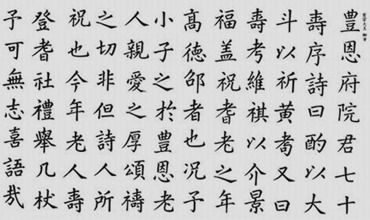 豐恩府院君七十
壽序詩曰酌以大
斗以祈黃耈又曰
壽考維祺以介景
福盖祝耆老之年
髙德邵者也况子
小子之於豐恩老
人親愛之厚頌禱
之切非但詩人所
祝也今年老人壽
登耆社禮舉几杖
子可無志喜語哉